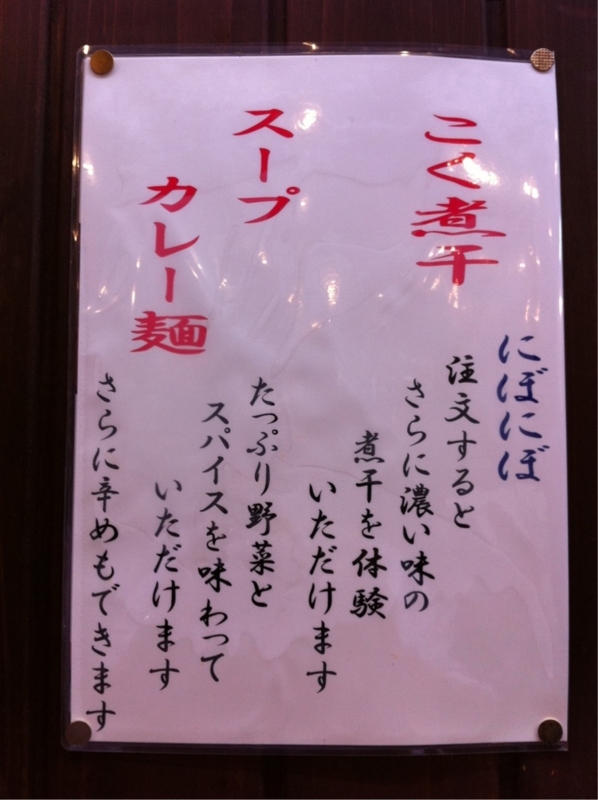 こく煮干
にぼにぼ
注文すると
さらに濃い味の
煮干を体験
いただけます
スープ
カレー麺
たっぷり野菜と
スパイスを味わって
いただけます
さらに辛めもできます